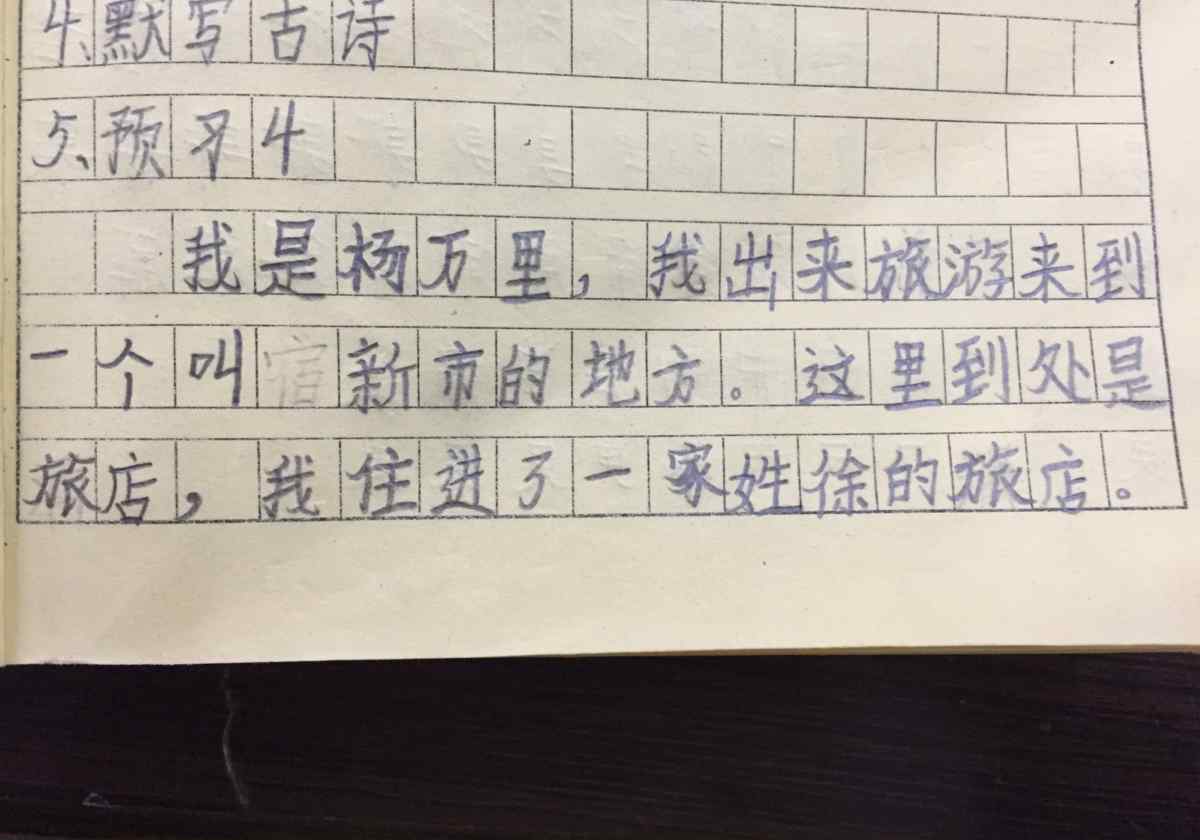 4、默写古诗
5、预习4
我是杨万里，我出来旅游来到
一个叫宿新市的地方。这里到处是
旅店，我住进了一家姓徐的旅店。